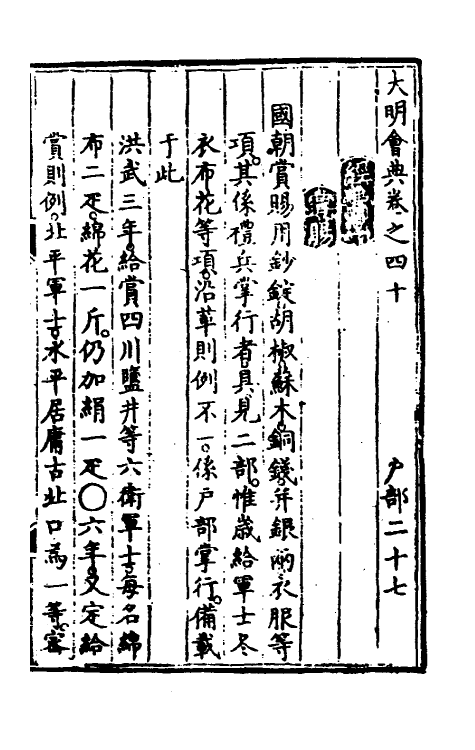 大明會典卷之四十　戶部二十七
賞賜
國朝賞賜用鈔錠胡椒蘇木銅錢并銀兩衣服等
項其係禮兵掌行者具見二部惟歲給軍士冬
衣布花等項沿革則例不一係戶部掌行備載
于此
洪武三年給賞四川鹽井等六衛軍士每名綿
布二疋綿花一斤仍加絹一疋○六年又定給
賞則例北平軍士永平居庸古北口為一等密